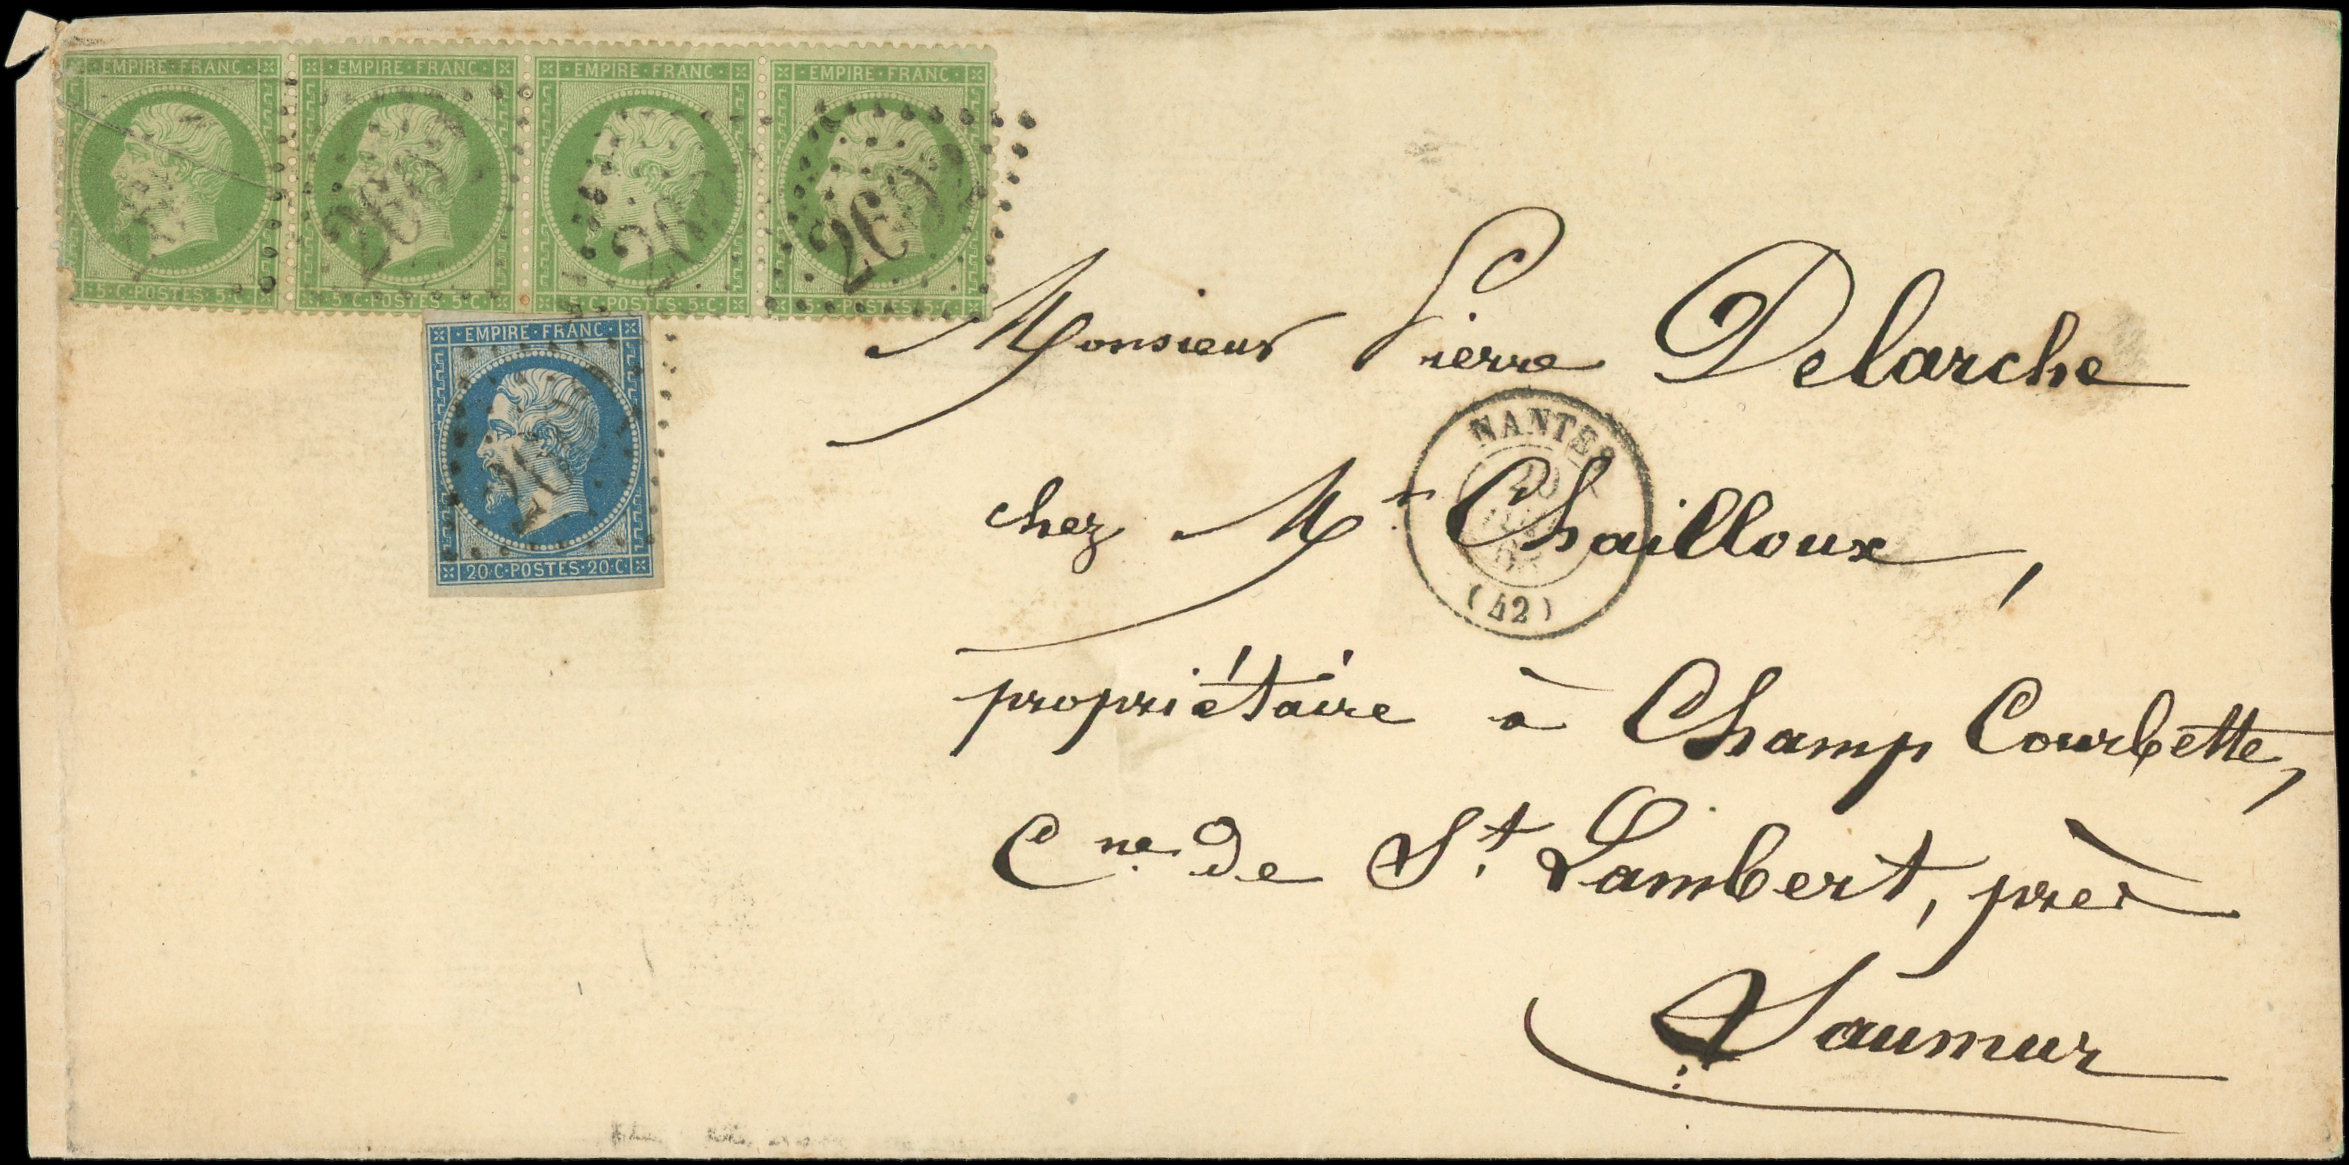 EMPIRE·FRANC· EMPIRE·FRANC· EMPIRE·FRANC· EMPIRE·FRANC·
5·C·POSTES·5·C 5·C·POSTES·5·C 5·C·POSTES·5·C 5·C·POSTES·5·C
EMPIRE·FRANC·
20·C·POSTES·20·C
Monsieur Pierre Delarche
NANTES
chez Mr Chailloux,
(42)
propriétaire à Champ Courbette,
Cne de St Lambert, près
Saumur